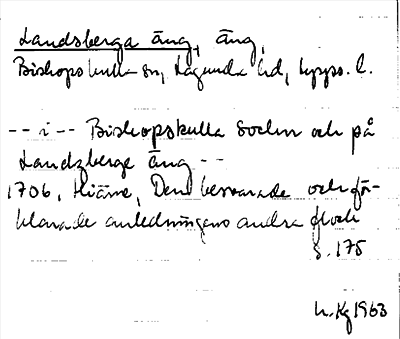 Landsberga äng, äng,
Biskopskulla sn, Lagunda hd, Upps. l.
-- i -- Biskopskulla Sochn och på
Landzberge äng --
1706, Hiärne, Den beswarade och för-
klarade anledningens andra flock
s. 175
L. Kg 1963